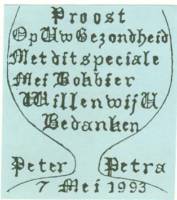 Proost
Op Uw Gezondheid
Met dit speciale
Mei Bokbier
Willen wij U
Bedanken
Peter Petra
7 Mei 1993